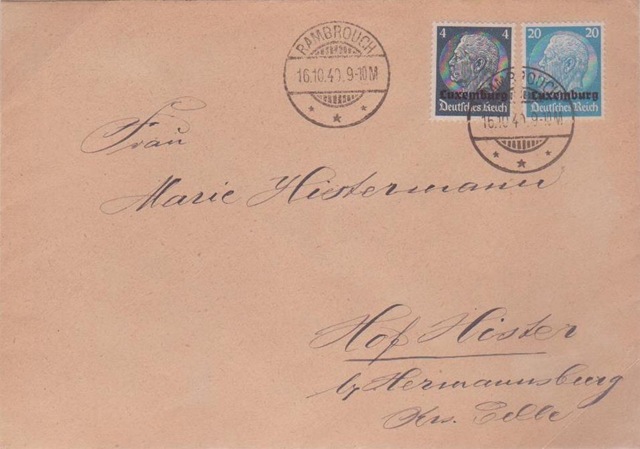 RAMBROUCH
16.10.40. 9-10M
4 4
Luxemburg
Deutsches Reich
20 20
Luxemburg
Deutsches Reich
RAMBROUCH
16.10.40. 9-10M
Frau
Marie Histermann
Hof Hister
b/ Hermannsburg
Krs. Celle